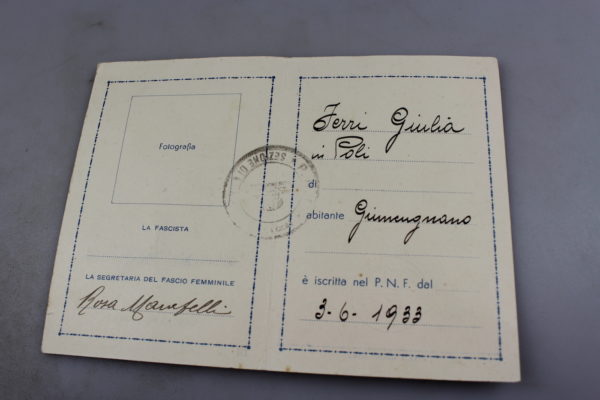 Fotografia
LA FASCISTA
LA SEGRETARIA DEL FASCIO FEMMINILE
Rosa
SEZIONE DI
Ferri Giulia
in Poli
di
abitante Gimengnano
è iscritta nel P. N. F. dal
3-6-1933